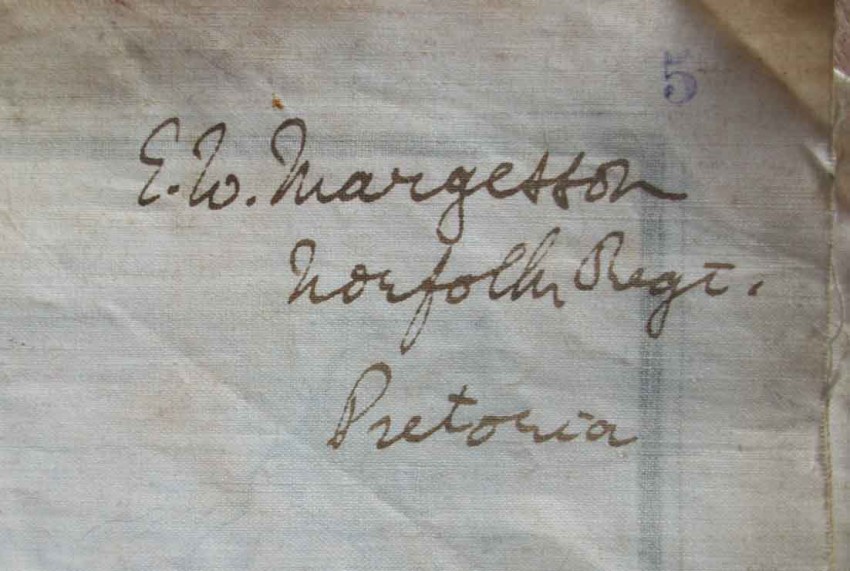 5
E.W. Margesson
Norfolk Regt.
Pretoria